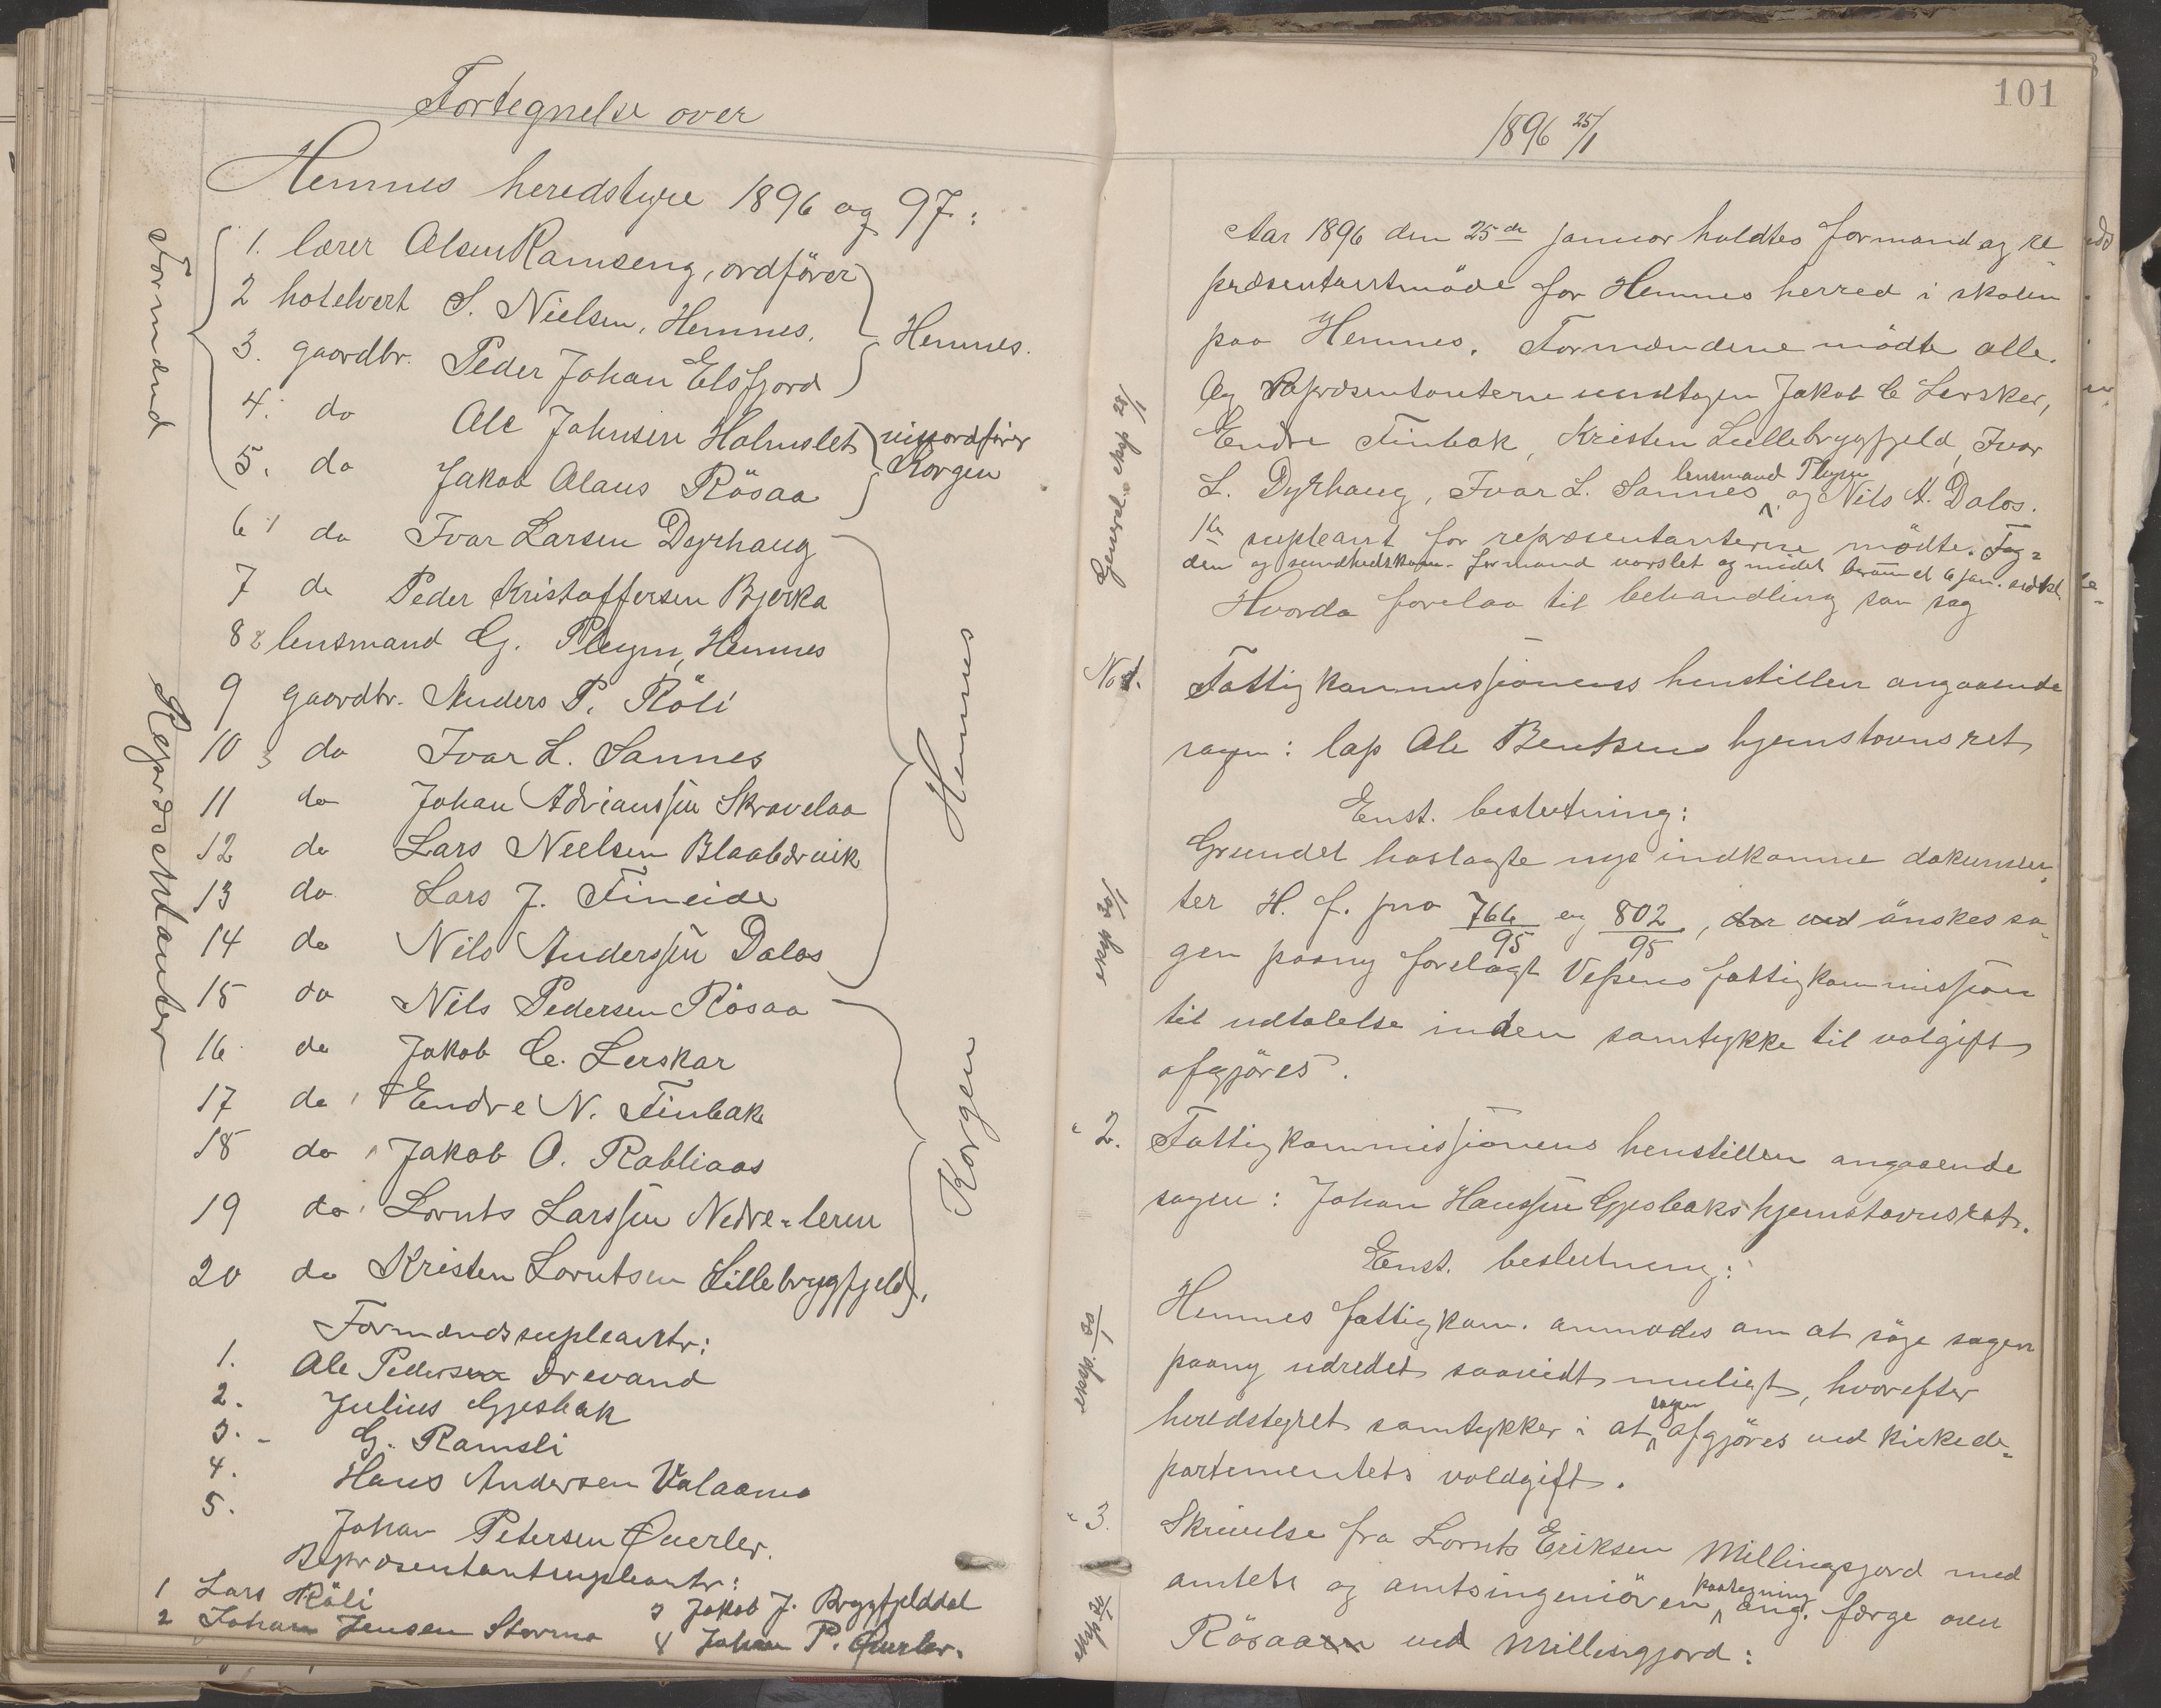 Fortegnelse over
Hemnes heredstyre 1896 og 97:
Formænd
1. lærer Olsen Ramseng, ordförer
2 hotelvert S. Nielsen, Hemnes.
3. gaardbr. Peder Johan Elsfjord
Hemnes.
4. do Ole Johnsen Holmslet viseordförer
5. do Jakob Olaus Rösaa Korgen
Repræsentanter
6 1 do Ivar Larsen Dyrhaug
7 do Peder Kristoffersen Bjerka
8 2 lensmand G. Pleym, Hemnes
9 gaardbr. Anders P. Röli
10 3 do Ivar L. Sannes
11 do Johan Adrianssen Skravelaa
12 do Lars Nielsen Blaabærvik
13 do Lars J. Fineide
14 do Nils Anderssen Dalos
Hemnes
15 do Nils Pedersen Rösaa
16 do Jakob C. Lerskar
17 do Endre N. Finbak
18 do Jakob O. Rabliaas
19 do Lornts Larssen Nedre-leren
20 do Kristen Lorntsen Lillebryggfjeld,
Korgen
Formændssupleanter:
1. Ole Pedersen Drevand
2. Julius Gjesbak
3. - G. Ramsli
4. Hans Andersen Valaamo
5. Johan Petersen Qverler.
Repræsentantsupleanter:
1 Lars Röli 3 Jakob J. Bryggfjelddal
2 Johan Jensen Stormo 4 Johan P. Qverler.
101
1896 25/1
Aar 1896 den 25de januar holdtes formand og re-
præsentantmöde for Hemnes herred i skolen
paa Hemnes. Formændene mödte alle.
Og Repræsentanterne undtagen Jakob C Lersker,
Endre Finbak, Kristen Lillebryggfjeld, Ivar
L. Dyrhaug, Ivar L. Sannes, lensmand Pleym og Nils A. Dalos.
1ste supleant for repræsentanterne mödte. Fog-
den og sundhedskom. formand varslet og mödet berammet 6 jan.
Hvorda forelaa til behandling saa sag
No 1. Fattigkommissionens henstillen angaaende
sagen: lap Ole Bentsens hjemstavnsret
Enst. beslutning:
Grundet hoslagte nye indkomne dokumen-
ter H. f. jno 766/95 og 802/95, der ved önskes sa-
gen paany forelagt Vefsens fattigkommission
til udtalelse inden samtykke til volgift
afgjöres.
" 2. Fattigkommissionens henstillen angaaende
sagen: Johan Hanssen Gjesbaks hjemstavnsret.
Enst. beslutning:
Hemnes fattigkom. anmodes om at söge sagen
paany udredet saavidt muligt, hvorefter
heredstyret samtykker i at sagen afgjöres ved kirkede-
partementets voldgift.
" 3. Skrivelse fra Lornts Eriksen Millingsjord med
amtets og amtsingeniören paategning ang. færge over
Rösaaen ved Millingjord: